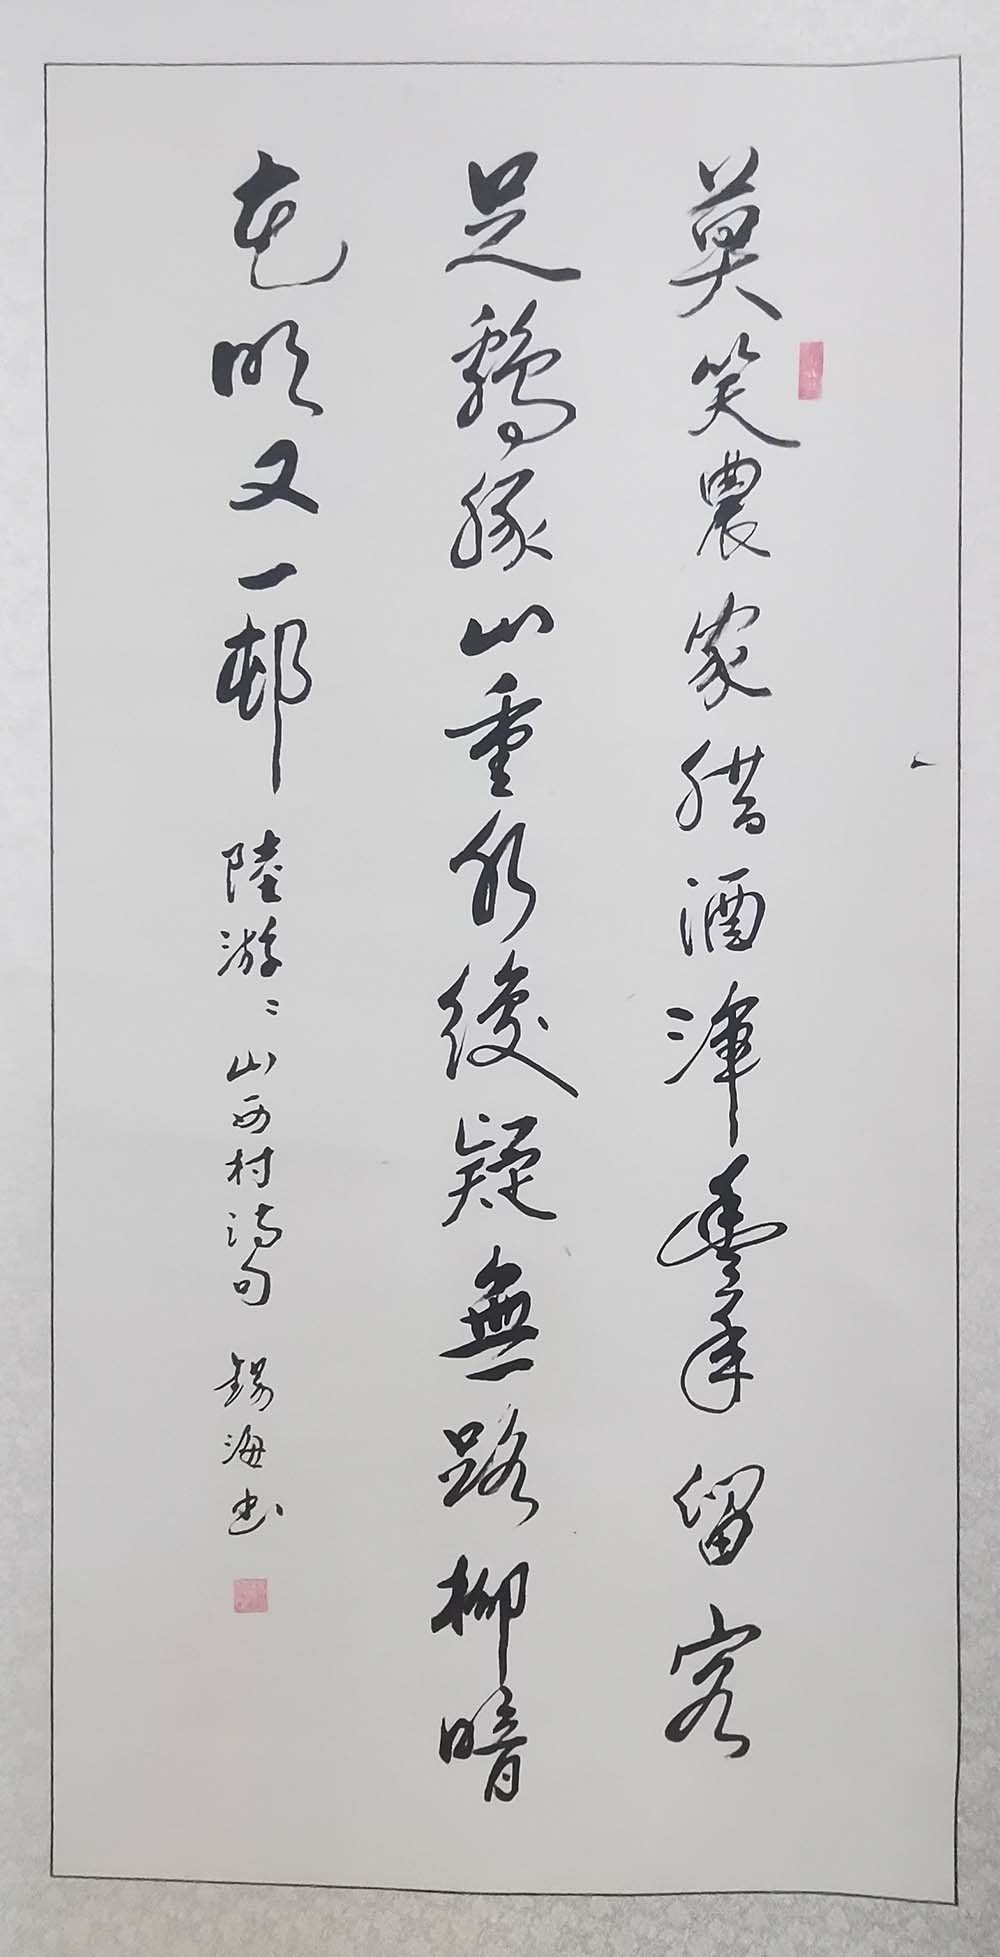 莫笑農家腊酒渾豐年留客
足鷄豚山重水複疑無路柳暗
花明又一邨 陸游〻山西村詩句 錫海書